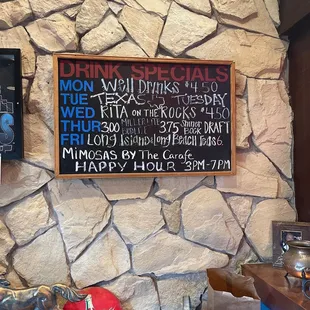 DRINK SPECIALS
MON Well Drinks $4.50
TUE TEXAS TUESDAY
WED RITA ON THE ROCKS $4.50
THUR 300 MILLER LITE BOTTLE 375 Shiner BOCK DRAFT
FRI Long Island/Long Beach Teas 6.00
MIMOSAS BY THE CARAFE
HAPPY HOUR 3PM-7PM